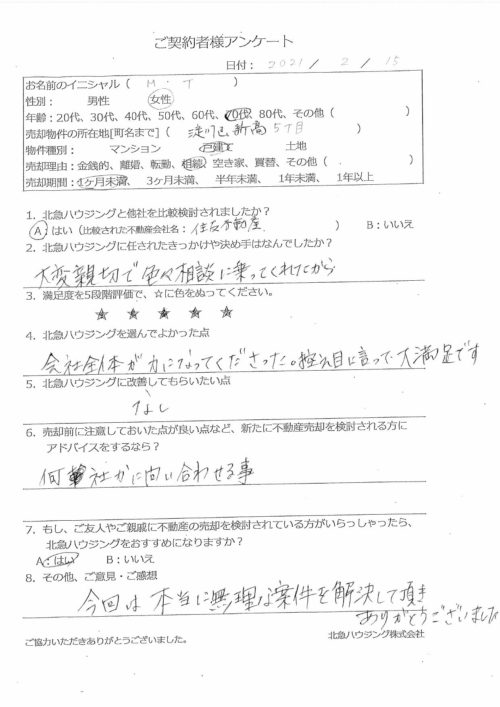 ご契約者様アンケート
日付： 2021 / 2 / 15
お名前のイニシャル（ M ・ T ）
性別： 男性 女性
年齢：20代、30代、40代、50代、60代、70代、80代、その他（ ）
売却物件の所在地[町名まで]（ 淀川区新高5丁目 ）
物件種別： マンション 戸建て 土地
売却理由：金銭的、離婚、転勤、相続、空き家、買替、その他（ ）
売却期間：1ヶ月未満、 3ヶ月未満、 半年未満、 1年未満、 1年以上
1. 北急ハウジングと他社を比較検討されましたか？
A：はい（比較された不動産会社名： 住友不動産 ） B：いいえ
2. 北急ハウジングに任されたきっかけや決め手はなんでしたか？
大変親切で色々相談に乗ってくれたから
3. 満足度を5段階評価で、☆に色をぬってください。
★ ★ ★ ★ ★
4. 北急ハウジングを選んでよかった点
会社全体が力になってくださった。控え目に言って大満足です
5. 北急ハウジングに改善してもらいたい点
なし
6. 売却前に注意しておいた点が良い点など、新たに不動産売却を検討される方に
アドバイスをするなら？
何社かに問い合わせる事
7. もし、ご友人やご親戚に不動産の売却を検討されている方がいらっしゃったら、
北急ハウジングをおすすめになりますか？
A：はい B：いいえ
8. その他、ご意見・ご感想
今回は本当に無理な案件を解決して頂き
ありがとうございました
ご協力いただきありがとうございました。 北急ハウジング株式会社